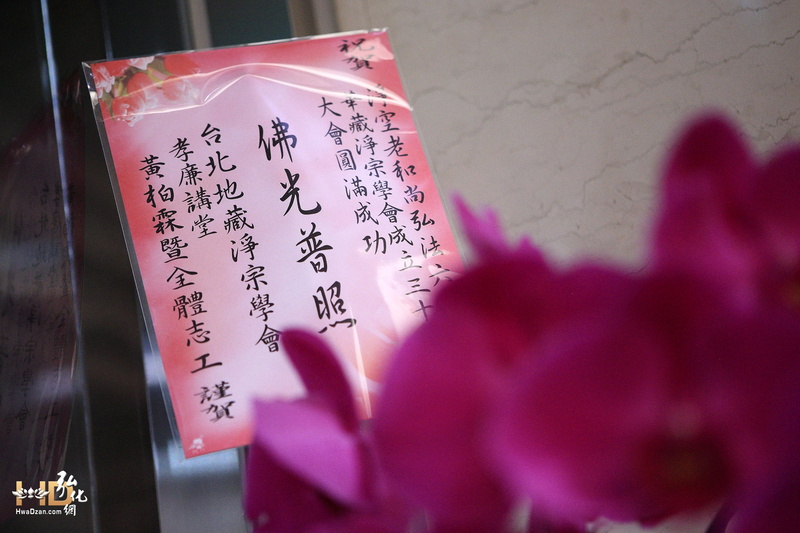 祝賀
淨空老和尚弘法六
華藏淨宗學會成立三十
大會圓滿成功
佛光普照
台北地藏淨宗學會
孝廉講堂
黃柏霖暨全體志工 謹賀
HD 弘化網
HwaDzan.com